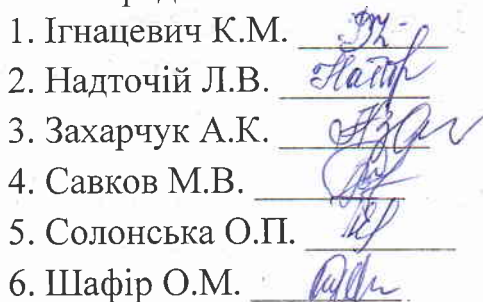 1. Ігнацевич К.М.
2. Надточій Л.В.
3. Захарчук А.К.
4. Савков М.В.
5. Солонська О.П.
6. Шафір О.М.